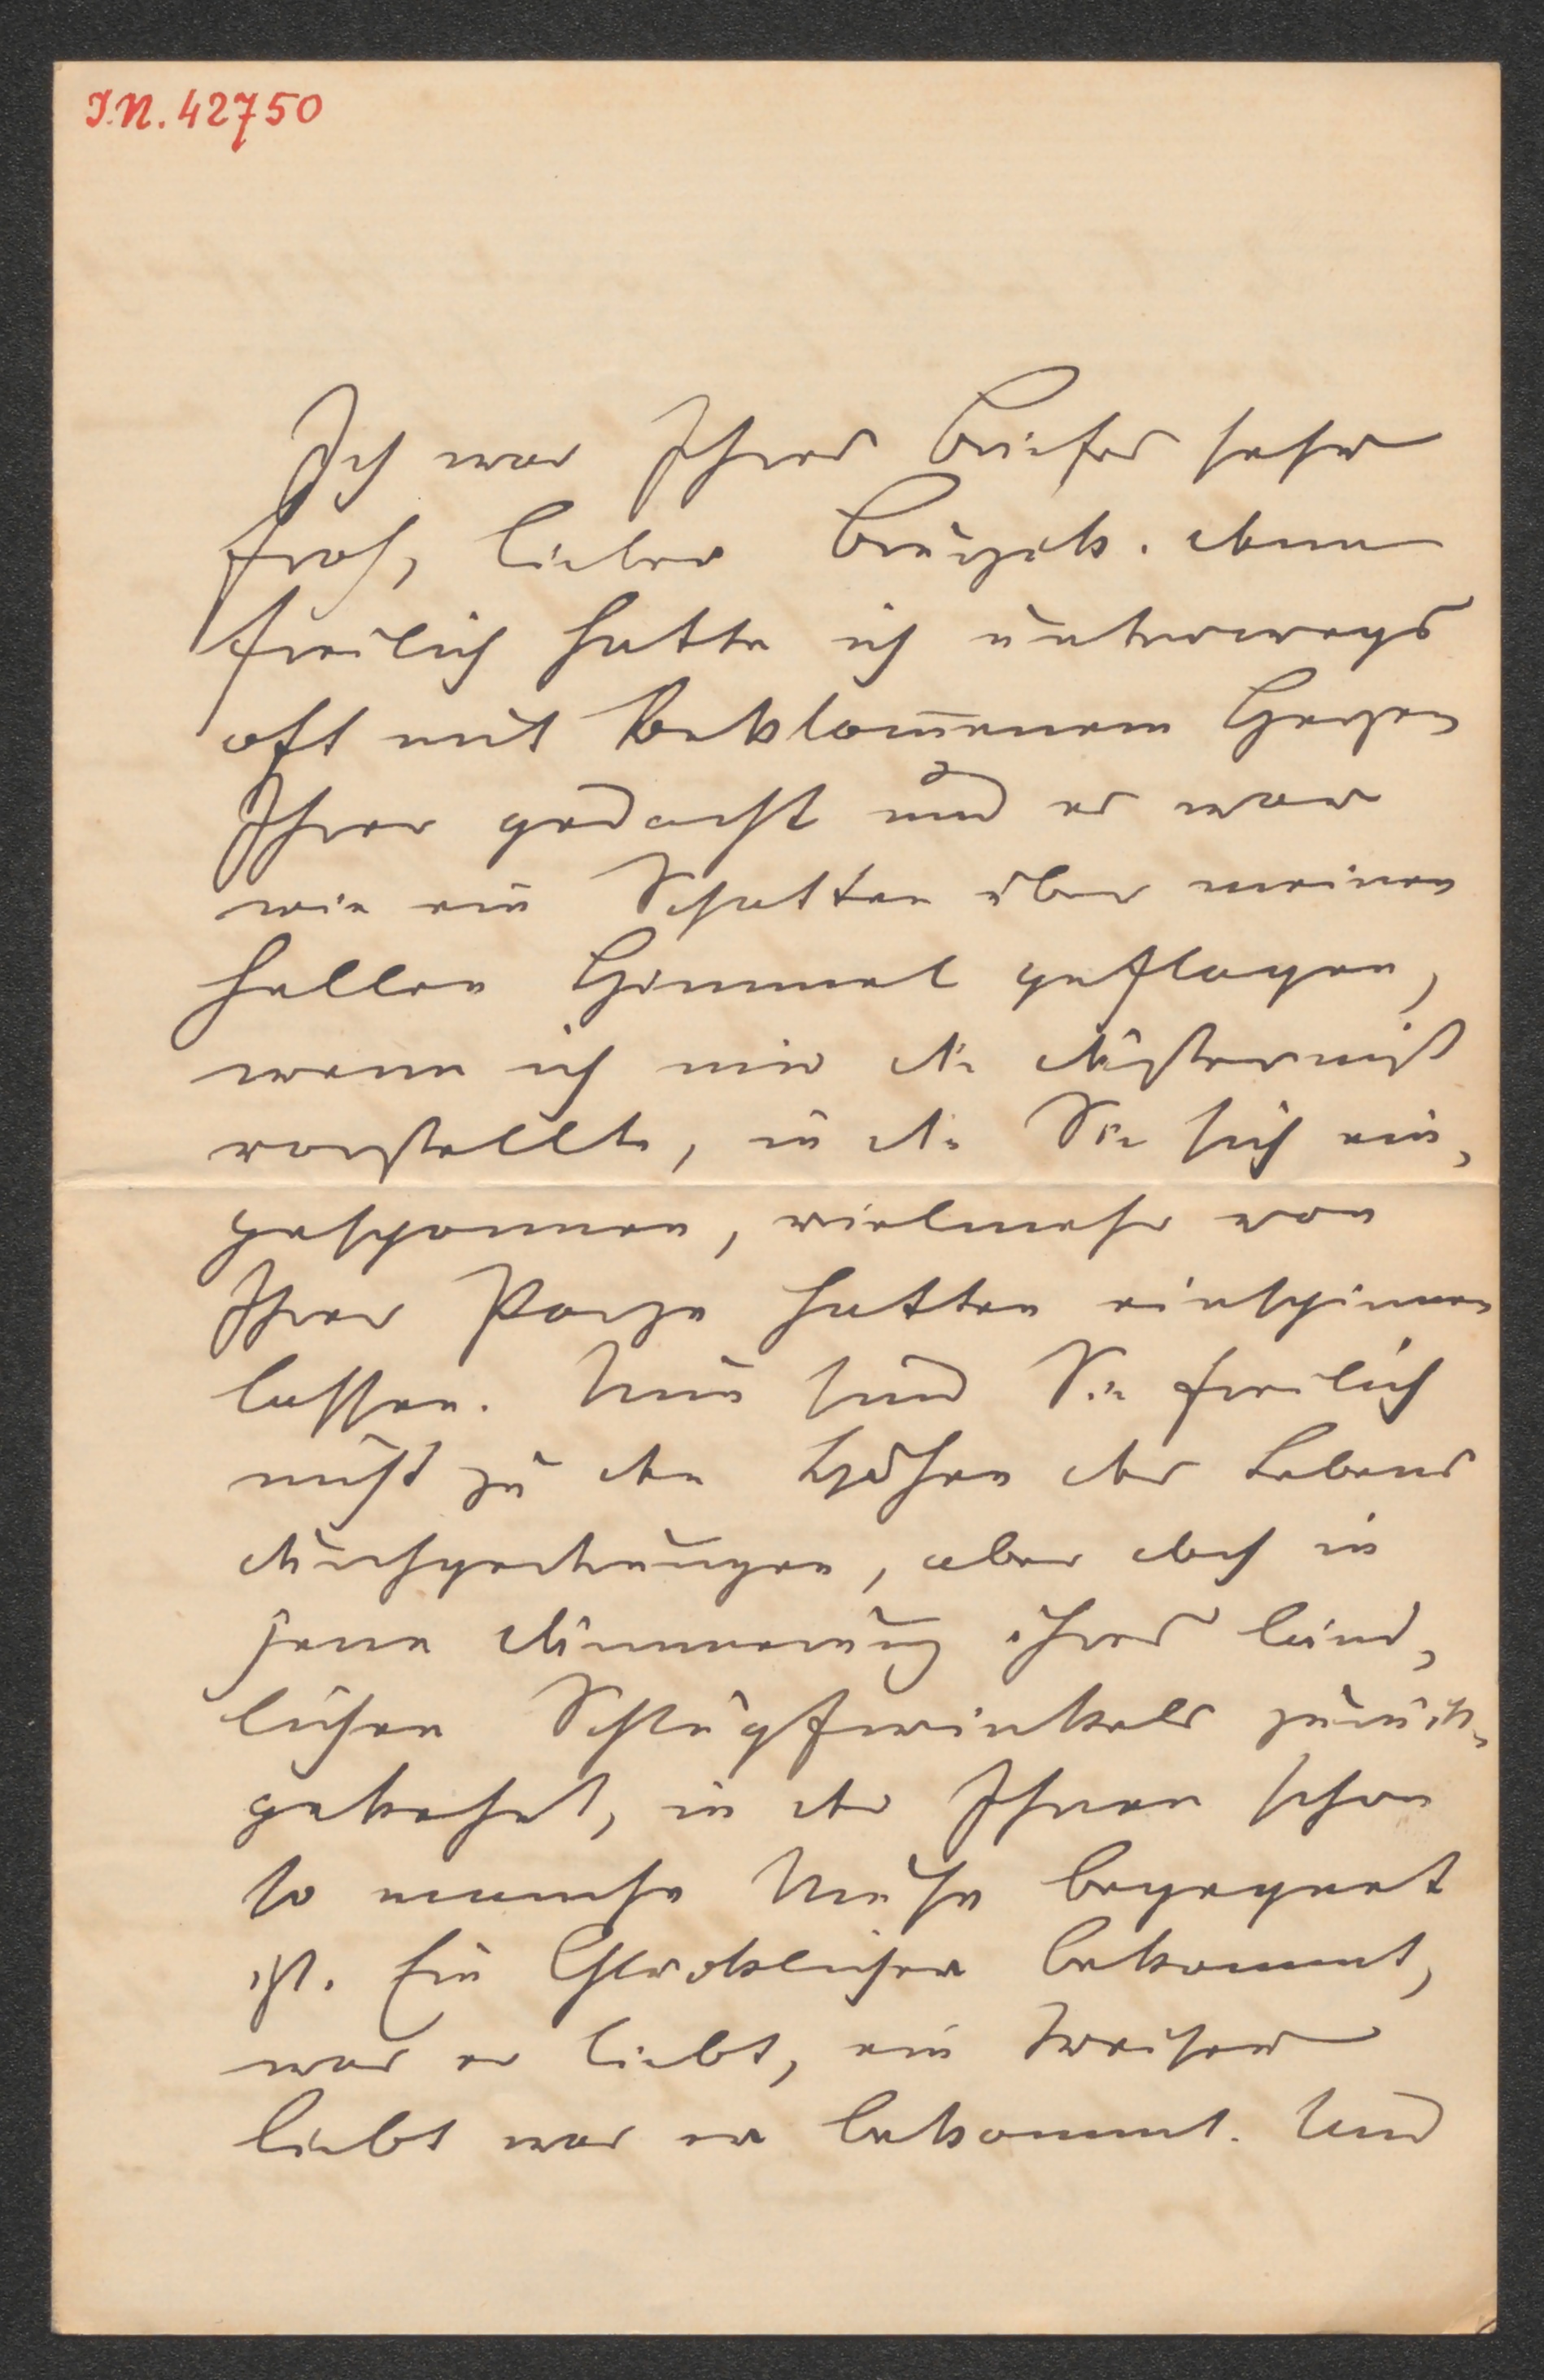 I.N. 42750
Ich war Ihres Briefes sehr
froh, lieber . denn
freilich hatte ich unterwegs
oft mit beklom̅enem Herzen
Ihrer gedacht und es war
wie ein Schatten über meinen
hellen Himmel geflogen,
wenn ich mir die düsterniß
vorstellte, in die Sie sich ein,
gesponnen, vielmehr von
Ihrer Parze hatten einspinnen
lassen. Nun sind Sie freilich
nicht zu den Höhen des Lebens
durchgedrungen, aber doch in
jene dämmerung ihres länd,
lichen Schlupfwinkels zurück,
gekehrt, in der Ihnen schon
so manche Muse begegnet
ist. Ein Glücklicher bekommt,
was er liebt, ein Weiser
liebt was er bekommt. Und